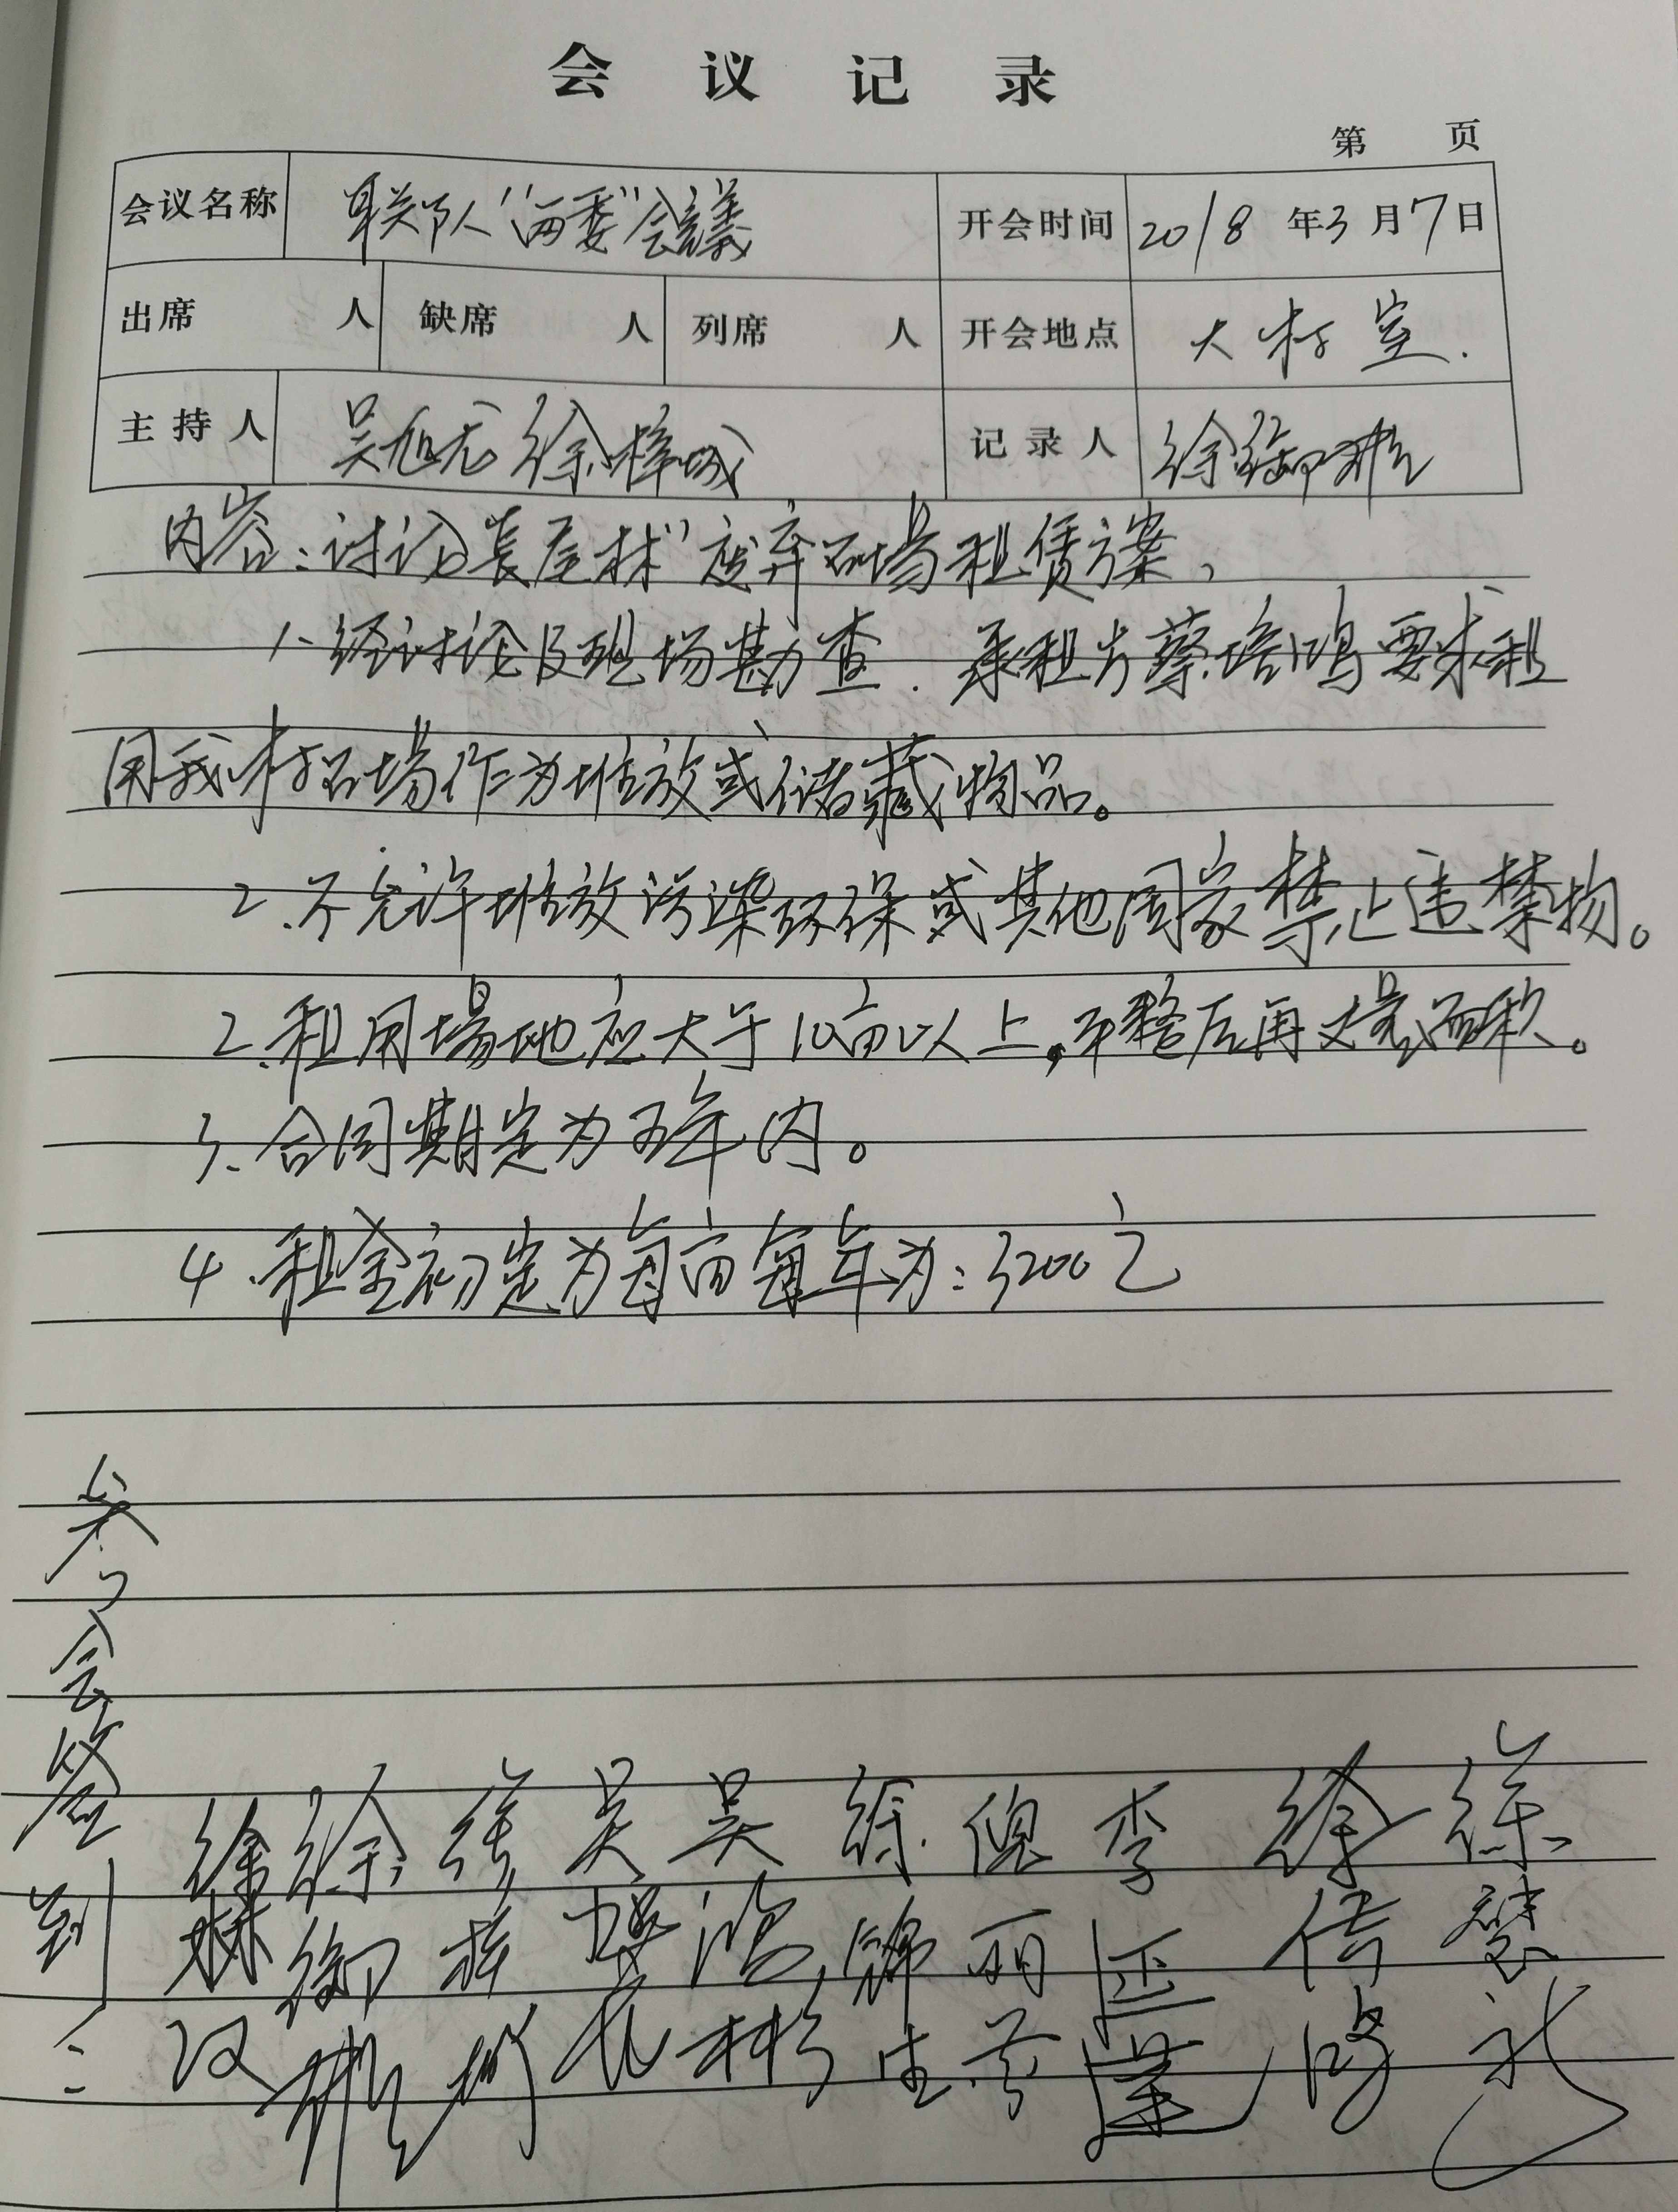 会 议 记 录
第 页
会议名称 “两委”会議 开会时间 2018 年3月7日
出席 人 缺席 人 列席 人 开会地点 大村室.
主持人 吴旭龙 徐梓城 记录人 徐御
内容:讨论“長尾林”废弃石場租赁方案,
1.经讨论及现场勘查.承租方蔡培鸿要求租
用我村石場作为堆放或储藏物品。
2.不允许堆放污染环保或其他国家禁止违禁物。
2.租用場地应大于10亩以上,平整后再丈量面积。
3.合同期定为五年内。
4.租金初定为每亩每年为:3200元
参与会签到:
徐 徐 吴 吴 倪 李 徐
林 御 鸿 锦 丽 传
汉 龙 彬 生 芬 蓬 鸿